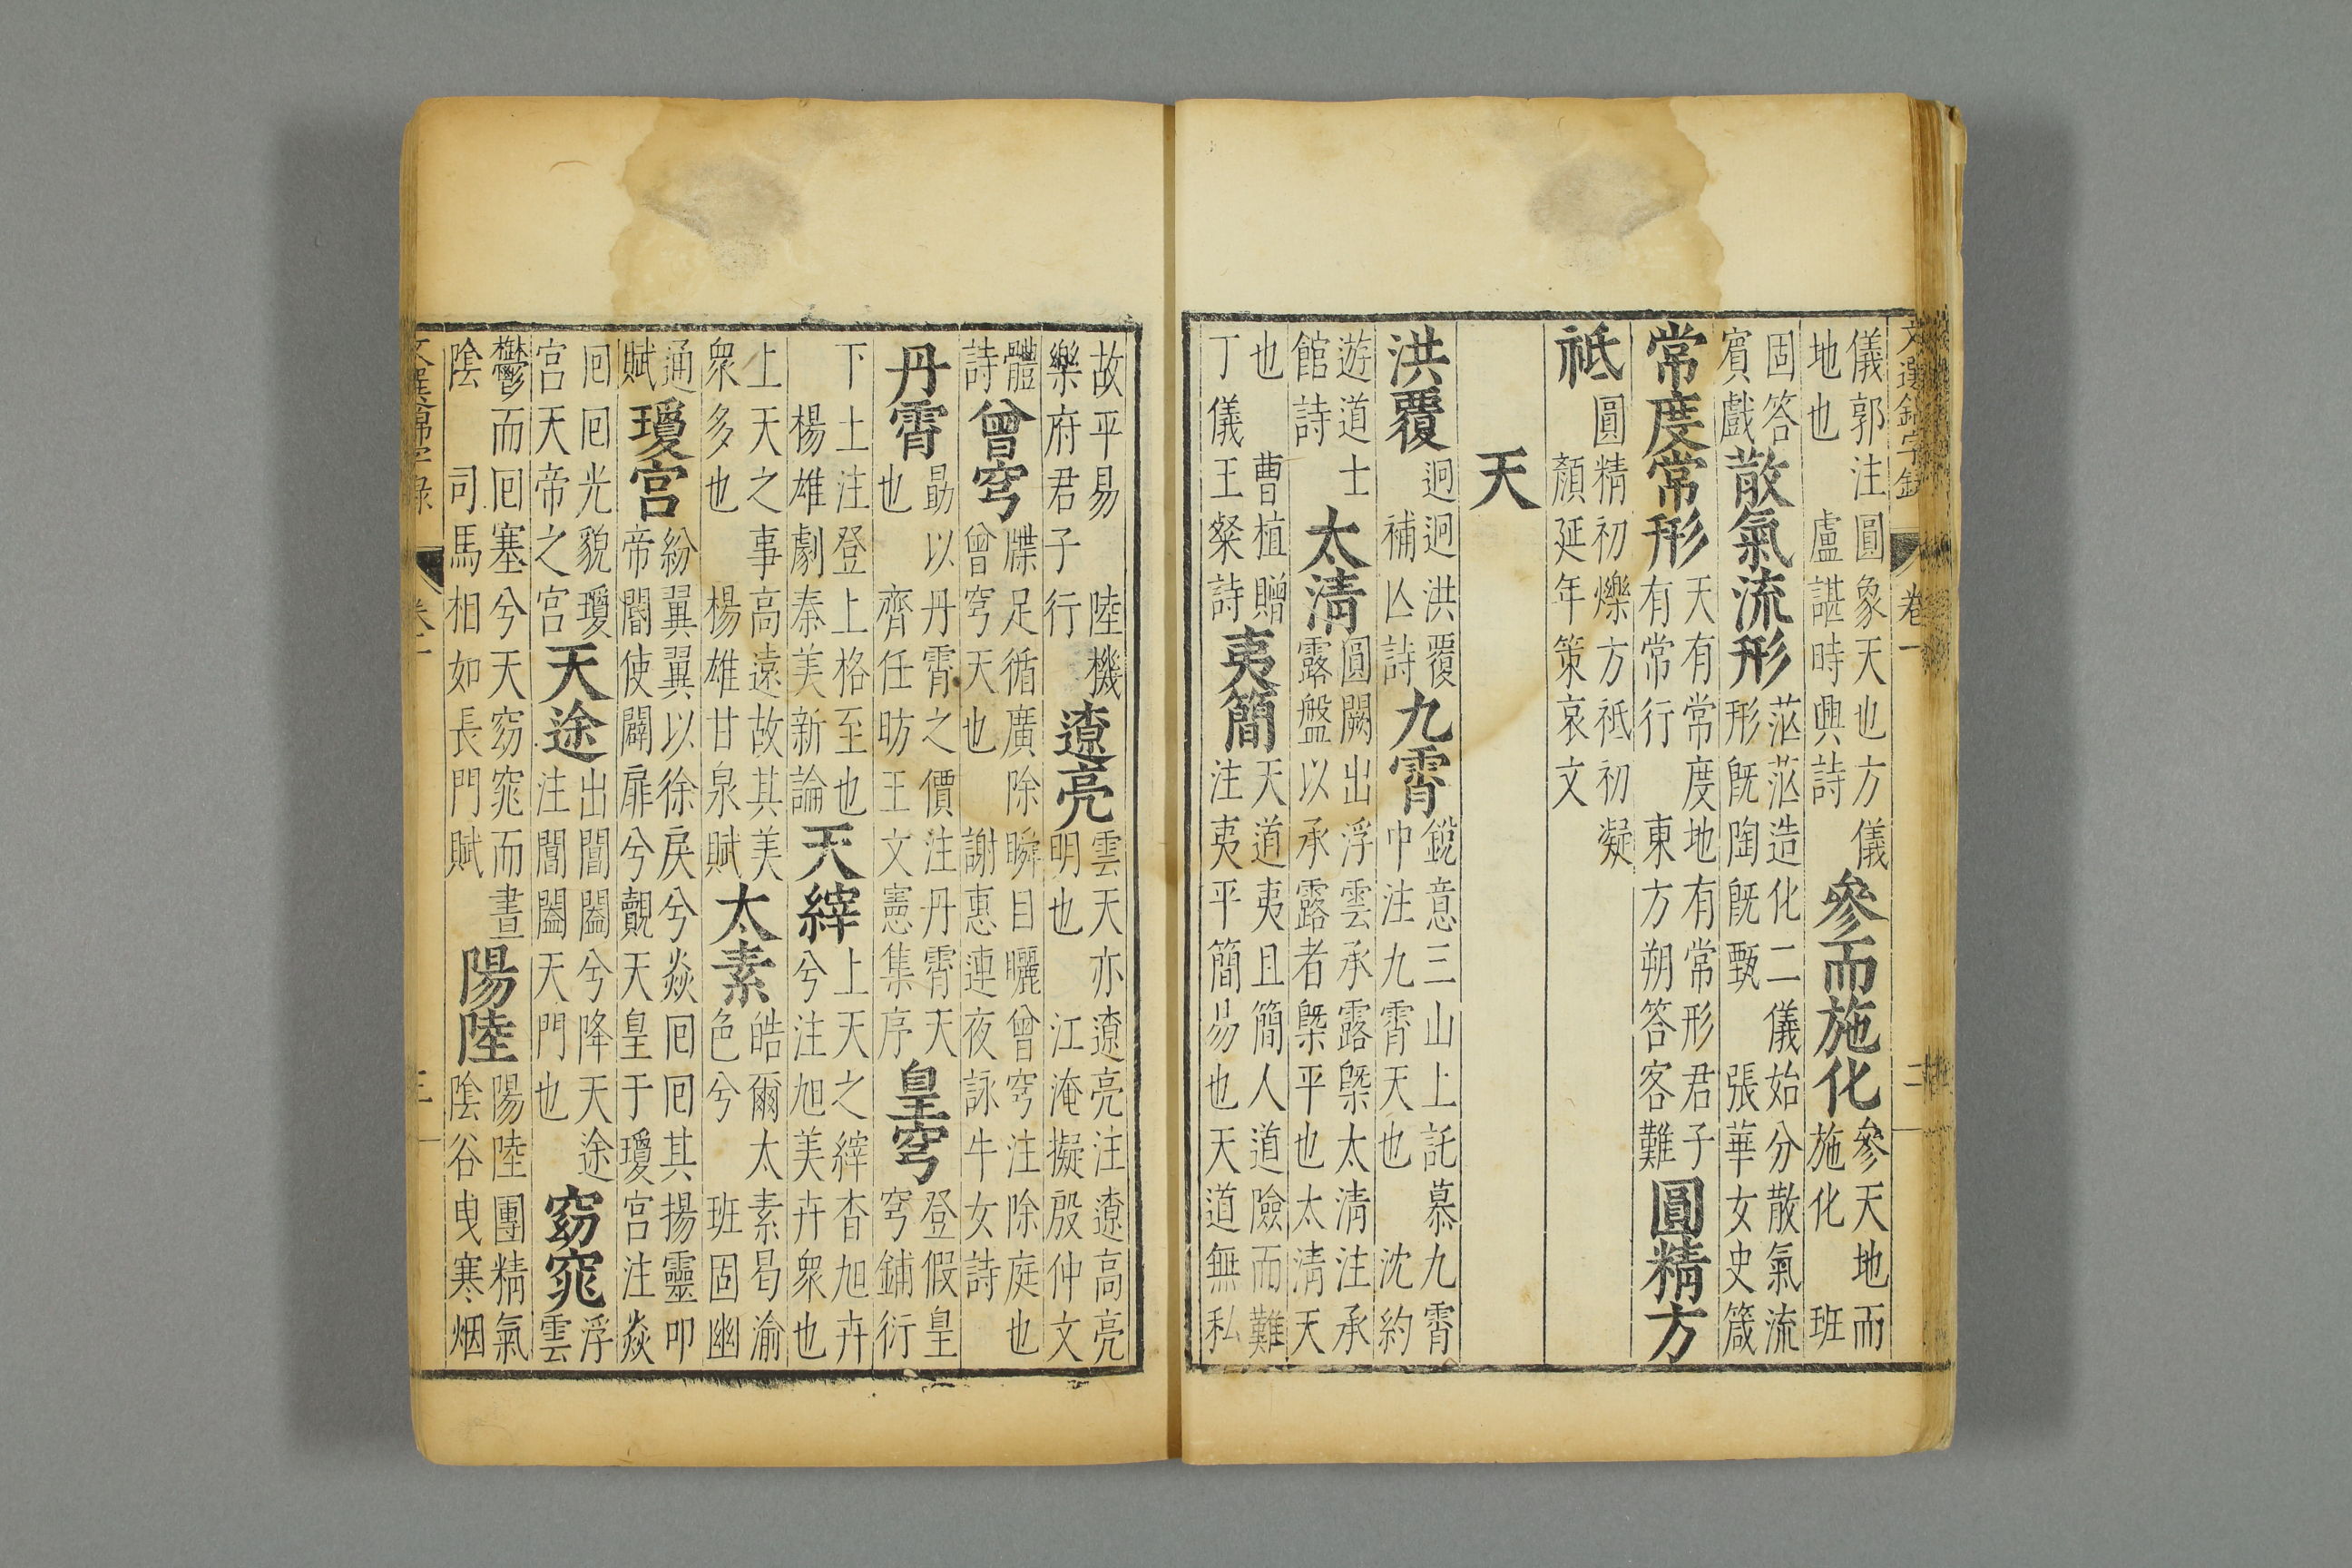 文選錦字錄 卷一 二
儀郭注圓象天也方儀地也盧諶時興詩參而施化參天地而施化班
固答賓戲散氣流形茫茫造化二儀始分散氣流形既陶既甄張華女史箴
常度常形天有常度地有常形君子有常行東方朔答客難圓精方
祗圓精初爍方祗初凝顏延年策哀文
天
洪覆迥迥洪覆補亾詩九霄銳意三山上託慕九霄中注九霄天也沈約
遊道士館詩太清圓闕出浮雲承露槩太清注承露盤以承露者槩平也太清天
也曹植贈丁儀王粲詩夷簡天道夷且簡人道險而難注夷平簡易也天道無私
故平易陸機樂府君子行遼亮雲天亦遼亮注遼高亮明也江淹擬殷仲文
體詩曾穹牒足循廣除瞬目曬曾穹注除庭也曾穹天也謝惠連夜詠牛女詩
丹霄勗以丹霄之價注丹霄天也齊任昉王文憲集序皇穹登假皇穹鋪衍
下土注登上格至也楊雄劇秦美新論天縡上天之縡杳旭卉兮注旭美卉衆也
上天之事高遠故其美衆多也楊雄甘泉賦太素皓爾太素曷渝色兮班固幽
通賦瓊宮紛翼翼以徐戾兮焱回回其揚靈叩帝閽使闢扉兮覿天皇于瓊宮注焱
回回光貌瓊宮天帝之宮天途出閶闔兮降天途注閶闔天門也窈窕浮雲
鬱而回塞兮天窈窕而晝陰司馬相如長門賦陽陸陽陸團精氣陰谷曳寒烟
文選錦字錄 卷一 三